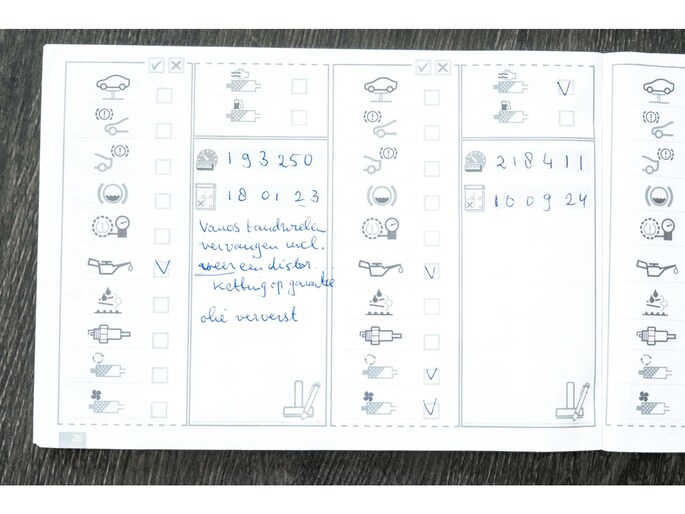 193250
18 01 23
Vanos tandwielen
vervangen incl.
weer een distr.
ketting op garantie
olie ververst
218411
10 09 24